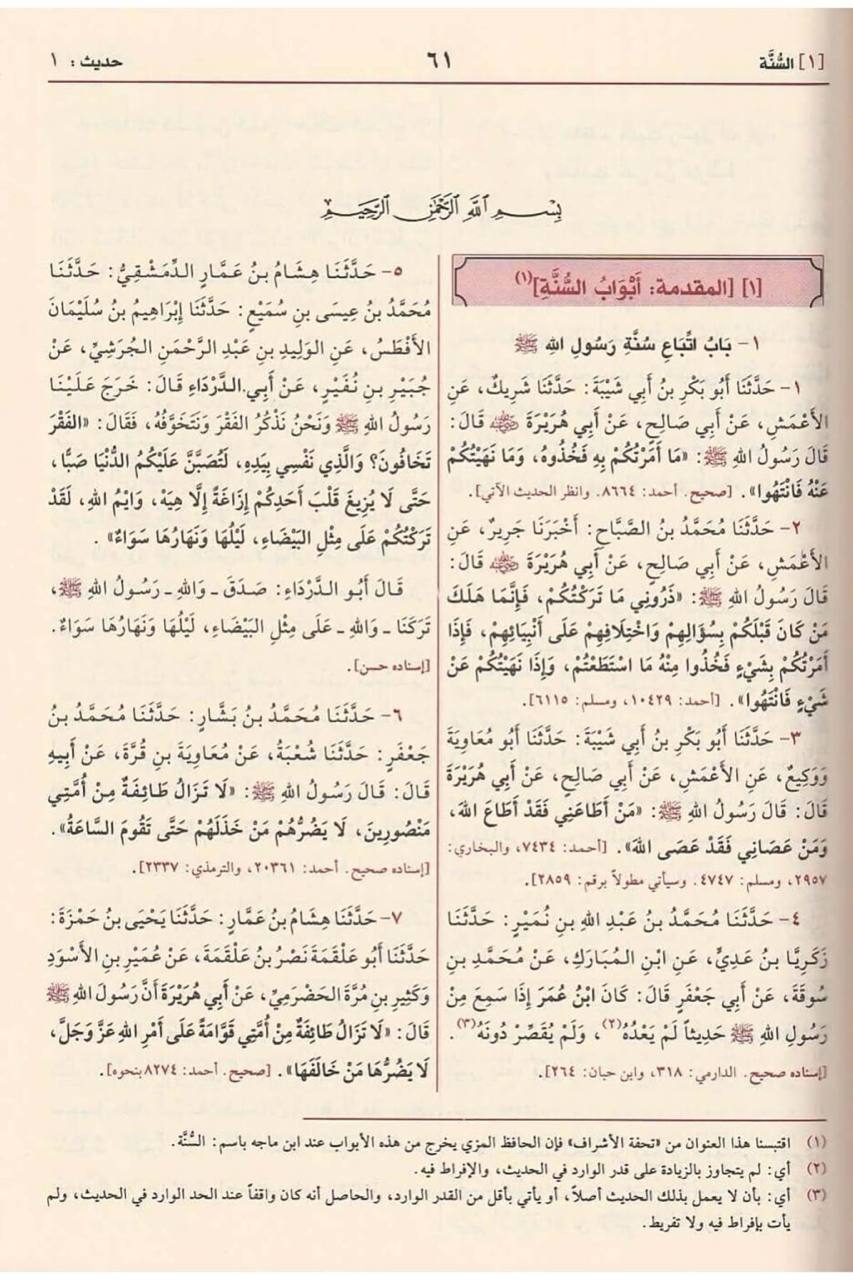 [١] السُّنَّة
٦١
حديث: ١
بِسْمِ اللهِ الرَّحْمَنِ الرَّحِيمِ
[١] [المقدمة: أَبْوَابُ السُّنَّةِ](١)
١- بَابُ اتِّبَاعِ سُنَّةِ رَسُولِ اللهِ ﷺ
١- حَدَّثَنَا أَبُو بَكْرِ بنُ أَبِي شَيْبَةَ: حَدَّثَنَا شَرِيكٌ، عَنِ
الأَعْمَشِ، عَنْ أَبِي صَالِحٍ، عَنْ أَبِي هُرَيْرَةَ ﵁ قَالَ:
قَالَ رَسُولُ اللهِ ﷺ: «مَا أَمَرْتُكُمْ بِهِ فَخُذُوهُ، وَمَا نَهَيْتُكُمْ
عَنْهُ فَانْتَهُوا». [صحيح. أحمد: ٨٦٦٤. وانظر الحديث الآتي].
٢- حَدَّثَنَا مُحَمَّدُ بنُ الصَّبَّاحِ: أَخْبَرَنَا جَرِيرٌ، عَنِ
الأَعْمَشِ، عَنْ أَبِي صَالِحٍ، عَنْ أَبِي هُرَيْرَةَ ﵁ قَالَ:
قَالَ رَسُولُ اللهِ ﷺ: «ذَرُونِي مَا تَرَكْتُكُمْ، فَإِنَّمَا هَلَكَ
مَنْ كَانَ قَبْلَكُمْ بِسُؤَالِهِمْ وَاخْتِلَافِهِمْ عَلَى أَنْبِيَائِهِمْ، فَإِذَا
أَمَرْتُكُمْ بِشَيْءٍ فَخُذُوا مِنْهُ مَا اسْتَطَعْتُمْ، وَإِذَا نَهَيْتُكُمْ عَنْ
شَيْءٍ فَانْتَهُوا». [أحمد: ١٠٤٢٩، ومسلم: ٦١١٥].
٣- حَدَّثَنَا أَبُو بَكْرِ بنُ أَبِي شَيْبَةَ: حَدَّثَنَا أَبُو مُعَاوِيَةَ
وَوَكِيعٌ، عَنِ الأَعْمَشِ، عَنْ أَبِي صَالِحٍ، عَنْ أَبِي هُرَيْرَةَ
قَالَ: قَالَ رَسُولُ اللهِ ﷺ: «مَنْ أَطَاعَنِي فَقَدْ أَطَاعَ اللهَ،
وَمَنْ عَصَانِي فَقَدْ عَصَى اللهَ». [أحمد: ٧٤٣٤، والبخاري:
٢٩٥٧، ومسلم: ٤٧٤٧. وسيأتي مطولاً برقم: ٢٨٥٩].
٤- حَدَّثَنَا مُحَمَّدُ بنُ عَبْدِ اللهِ بنِ نُمَيْرٍ: حَدَّثَنَا
زَكَرِيَّا بنُ عَدِيٍّ، عَنِ ابْنِ المُبَارَكِ، عَنْ مُحَمَّدِ بنِ
سُوقَةَ، عَنْ أَبِي جَعْفَرٍ قَالَ: كَانَ ابْنُ عُمَرَ إِذَا سَمِعَ مِنْ
رَسُولِ اللهِ ﷺ حَدِيثاً لَمْ يَعْدُهُ(٢)، وَلَمْ يُقَصِّرْ دُونَهُ(٣).
[إسناده صحيح. الدارمي: ٣١٨، وابن حبان: ٢٦٤].
٥- حَدَّثَنَا هِشَامُ بنُ عَمَّارٍ الدِّمَشْقِيُّ: حَدَّثَنَا
مُحَمَّدُ بنُ عِيسَى بنِ سُمَيْعٍ: حَدَّثَنَا إِبْرَاهِيمُ بنُ سُلَيْمَانَ
الأَفْطَسُ، عَنِ الوَلِيدِ بنِ عَبْدِ الرَّحْمَنِ الجُرَشِيِّ، عَنْ
جُبَيْرِ بنِ نُفَيْرٍ، عَنْ أَبِي الدَّرْدَاءِ قَالَ: خَرَجَ عَلَيْنَا
رَسُولُ اللهِ ﷺ وَنَحْنُ نَذْكُرُ الفَقْرَ وَنَتَخَوَّفُهُ، فَقَالَ: «الفَقْرَ
تَخَافُونَ؟ وَالَّذِي نَفْسِي بِيَدِهِ، لَتُصَبَّنَّ عَلَيْكُمُ الدُّنْيَا صَبًّا،
حَتَّى لَا يُزِيغَ قَلْبَ أَحَدِكُمْ إِزَاغَةً إِلَّا هِيَهْ، وَايْمُ اللهِ، لَقَدْ
تَرَكْتُكُمْ عَلَى مِثْلِ البَيْضَاءِ، لَيْلُهَا وَنَهَارُهَا سَوَاءٌ».
قَالَ أَبُو الدَّرْدَاءِ: صَدَقَ ـ وَاللهِ ـ رَسُولُ اللهِ ﷺ،
تَرَكَنَا ـ وَاللهِ ـ عَلَى مِثْلِ البَيْضَاءِ، لَيْلُهَا وَنَهَارُهَا سَوَاءٌ.
[إسناده حسن].
٦- حَدَّثَنَا مُحَمَّدُ بنُ بَشَّارٍ: حَدَّثَنَا مُحَمَّدُ بنُ
جَعْفَرٍ: حَدَّثَنَا شُعْبَةُ، عَنْ مُعَاوِيَةَ بنِ قُرَّةَ، عَنْ أَبِيهِ
قَالَ: قَالَ رَسُولُ اللهِ ﷺ: «لَا تَزَالُ طَائِفَةٌ مِنْ أُمَّتِي
مَنْصُورِينَ، لَا يَضُرُّهُمْ مَنْ خَذَلَهُمْ حَتَّى تَقُومَ السَّاعَةُ».
[إسناده صحيح. أحمد: ٢٠٣٦١، والترمذي: ٢٣٣٧].
٧- حَدَّثَنَا هِشَامُ بنُ عَمَّارٍ: حَدَّثَنَا يَحْيَى بنُ حَمْزَةَ:
حَدَّثَنَا أَبُو عَلْقَمَةَ نَصْرُ بنُ عَلْقَمَةَ، عَنْ عُمَيْرِ بنِ الأَسْوَدِ
وَكَثِيرِ بنِ مُرَّةَ الحَضْرَمِيِّ، عَنْ أَبِي هُرَيْرَةَ أَنَّ رَسُولَ اللهِ ﷺ
قَالَ: «لَا تَزَالُ طَائِفَةٌ مِنْ أُمَّتِي قَوَّامَةً عَلَى أَمْرِ اللهِ عَزَّ وَجَلَّ،
لَا يَضُرُّهَا مَنْ خَالَفَهَا». [صحيح. أحمد: ٨٢٧٤ بنحوه].
(١) اقتبسنا هذا العنوان من «تحفة الأشراف» فإن الحافظ المزي يخرج من هذه الأبواب عند ابن ماجه باسم: السُّنَّة.
(٢) أي: لم يتجاوز بالزيادة على قدر الوارد في الحديث، والإفراط فيه.
(٣) أي: بأن لا يعمل بذلك الحديث أصلاً، أو يأتي بأقل من القدر الوارد، والحاصل أنه كان واقفاً عند الحد الوارد في الحديث، ولم
يأت بإفراط فيه ولا تفريط.